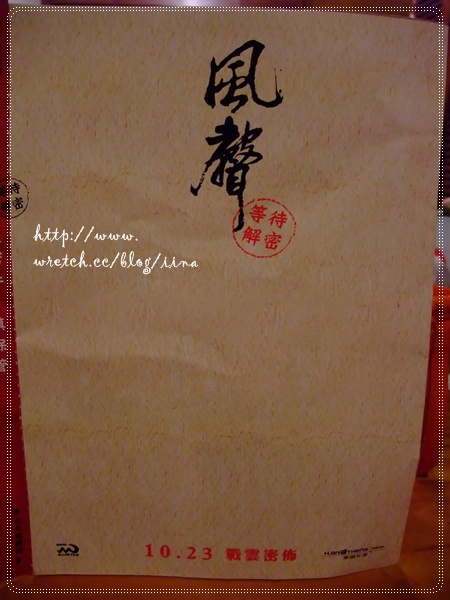 風聲
等待
解密
http://www.
wretch.cc/blog/iina
待
密
10.23 戰雲密佈